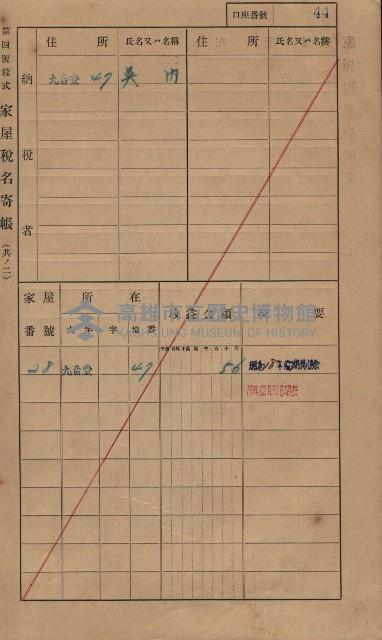 口座番號 44
第四號樣式 家屋稅名寄帳 (共ノ二)
納稅者
住所 氏名又ハ名稱 住所 氏名又ハ名稱
九曲堂 47 吳 内
家屋番號 所在 收益金額 摘要
大字 字 地番
28 九曲堂 47 56
高雄市立歷史博物館
KAOHSIUNG MUSEUM OF HISTORY